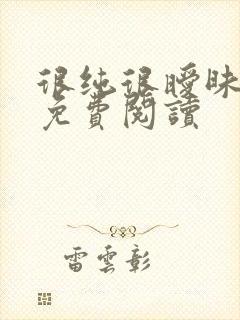 很纯很曖昧
免費閱讀
雷雲彰